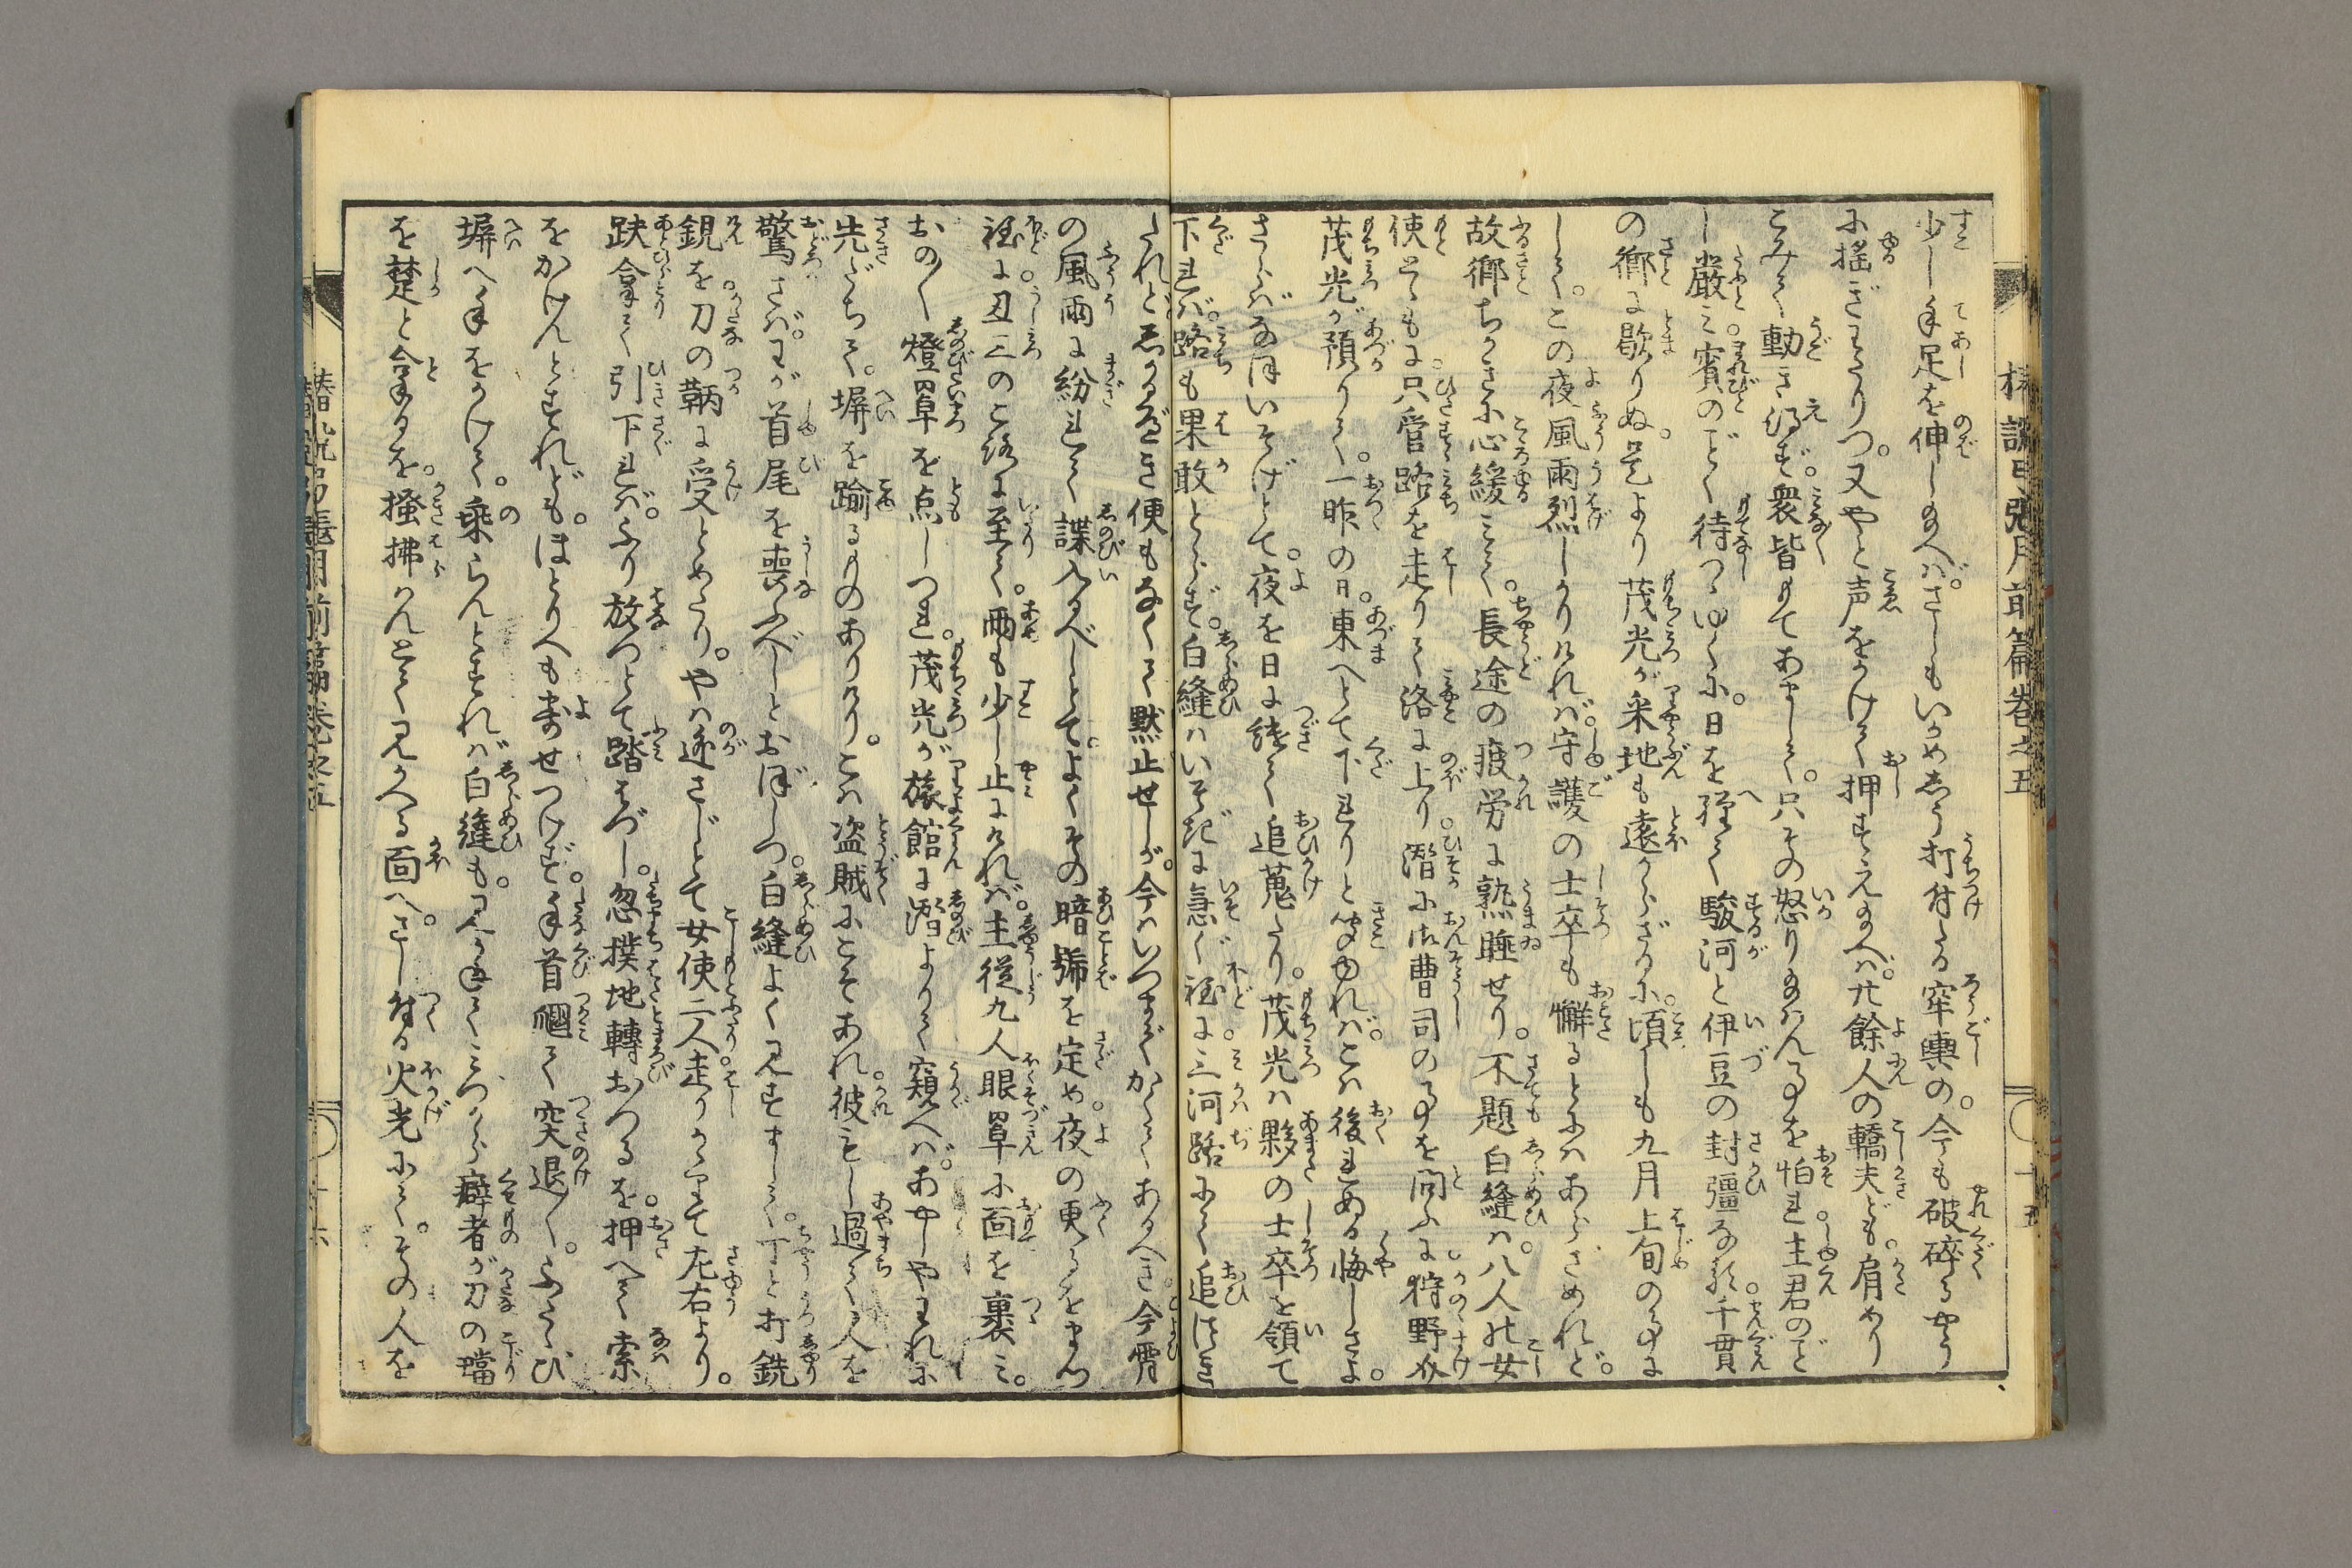 椿説弓張月前篇巻之五
少し手足を伸し給へば。さしもいかめしう打付たる牢輿の。今も破碎るやう
に揺ぎわたりつ。又やと声をかけて押すえ給へば。廿餘人の轎夫ども。肩めり
こみて動き得ず。衆皆もてあまして。只その怒り給はん事を怕れ主君のごと
し厳み賓のごとく待つゝゆくに。日を経て駿河と伊豆の封疆なる千貫
の郷に歇りぬ。是より茂光が采地も遠からざるに。頃しも九月上旬の事に
して。この夜風雨烈しかりければ。守護の士卒も懈るとにはあらざめれど。
故郷ちかきに心緩みて。長途の疲労に熟睡せり。不題白縫は。八人の女
使とゝもに。只管路を走りて洛に上り。潜に御曹司の事を問ふに。狩野介
茂光が預りて。一昨の日。東へとて下れりと聞ゆれば。こは後れぬる悔しさよ。
さらばなほいそげとて。夜を日に継て追蒐たり。茂光は夥の士卒を領て
下れば。路も果敢とらず。白縫はいそぎに急ぐ程に。三河路にて追つき
たれど。しかるべき便もなくて黙止せしが。今はいつまでかくてあるべき。今宵
の風雨に紛れて諜入るべしとて。よくその暗號を定め。夜の更るをまつ
程に。丑三のころに至て。雨も少し止みければ。主従九人眼罩に面を裹み。
おの〳〵燈罩を点しつれ。茂光が旅館に潜よりて窺へば。あやしやわれに
先だちて。塀を踰るものありけり。こは盗賊にこそあれ。彼もし過て人を
驚さば。わが首尾を喪ふべしとおぼしつ。白縫よく見すまして。丁と打銑
鋧を。刀の鞆に受とめたり。やは逃さじとて女使二人走りかゝりて左右より。
趺拿て引下せば。ふり放つとて踏はづし。忽撲地轉おつるを。押へて索
をかけんとすれども。ほとりへも寄せつけず。手首㧽て突退〳〵。ふたゝび
塀へ手をかけて。乗らんとすれば白縫も。又手してみづから癖者が刀の璫
を楚と拿るを。掻拂はんとて見かへる面へ。さし付る火光にて。その人を